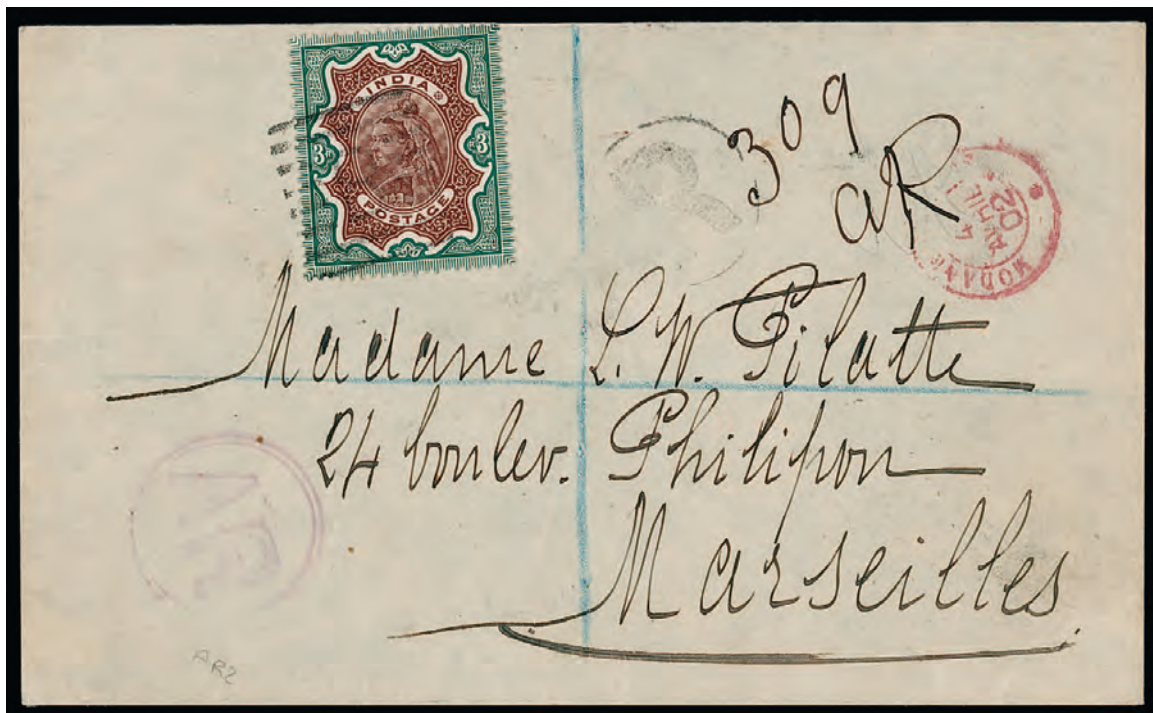 INDIA
3 3
POSTAGE
R
309
aR
AVRIL
02
Madame L. W. Pilatte
24 boulev. Philipon
Marseilles
AR
AR2